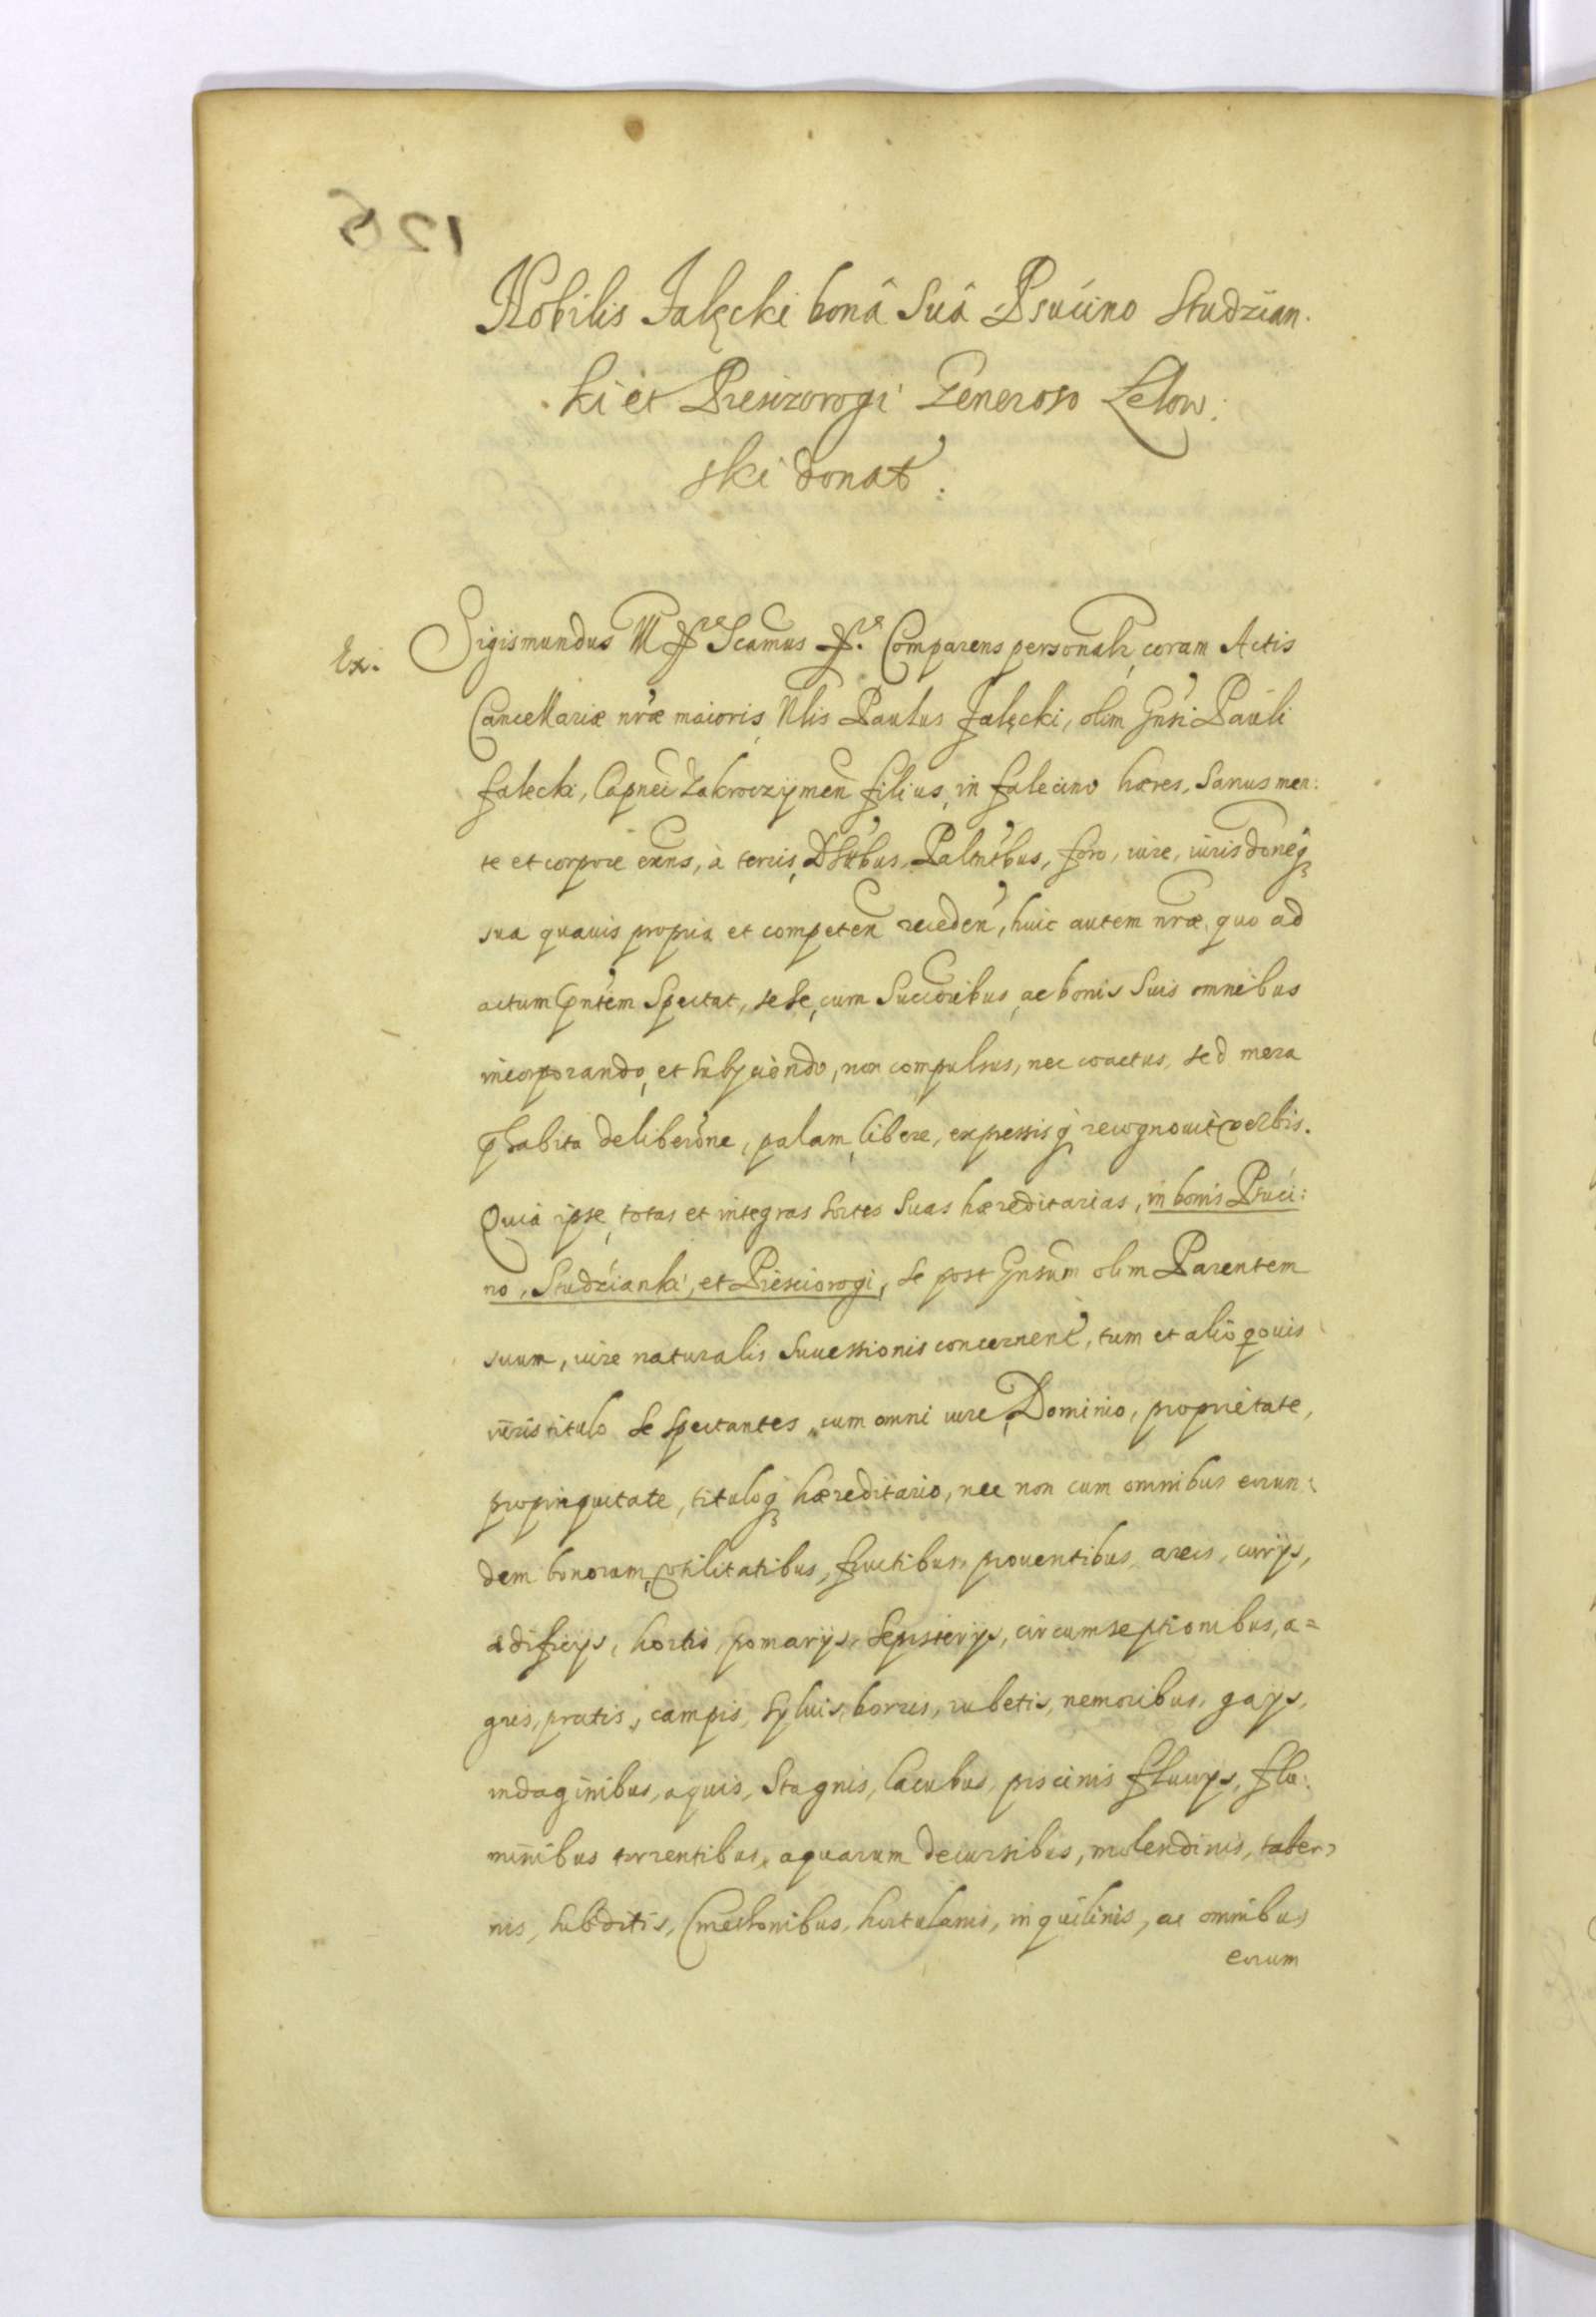 126
Nobilis Falęcki bonâ Suâ Psućino Studzian.
ki et Presizorogi Generoso Lelow:
ski donat.
Ex. Sigismundus III Dei gra Scamus &. Comparens personalr, coram Actis
Cancellariæ nræ maioris, Nlis Paulus Falęcki, olim Gnsi Pauli
Falęcki, Capnei Zakroczÿmen̄ filius, in Falęcino hæres, Sanus men:
te et corpore exñs, à terris, Dstrbus, Palntbus, foro, iure, iurisdōneq̨
sua quauis propria et competen̄ receden̄, huic autem nræ, quo ad
actum pn̄tem Spectat, sese, cum Succōribus, ac bonis Suis omnibus
incorporando, et subjciendo, non compulsus, nec coactus, sed mera
p̱habita deliberōne, palam, libere, expressisq̨ recognouit verbis.
Quia ipse, totas et integras Sortes Suas hæreditarias, in bonis Psuci:
no, Studźianki, et Piesciorogi, se post Gnsum olim Parentem
suum, iure naturalis Successionis concernen̄, tum et alio quouis
iuris titulo se spectantes, cum omni iure, Dominio, proprietate,
propinquitate, tituloq̨ hæreditario, nec non cum omnibus eorun:
dem bonorum, vtilitatibus, fructibus, prouentibus, areis, currÿs,
ædificÿs, hortis, pomarÿs, Sepisterÿs, circumseptionibus, a=
gris, pratis, campis, Syluis, borris, rubetis, nemoribus, gaÿs,
indaginibus, aquis, Stagnis, lacubus, piscinis, fluuÿs, flu:
minibus torrentibus, aquarum decursibus, molendinis, taber=
nis, Subditis, Cmethonibus, hortulanis, inquilinis, ac omnibus
eorum